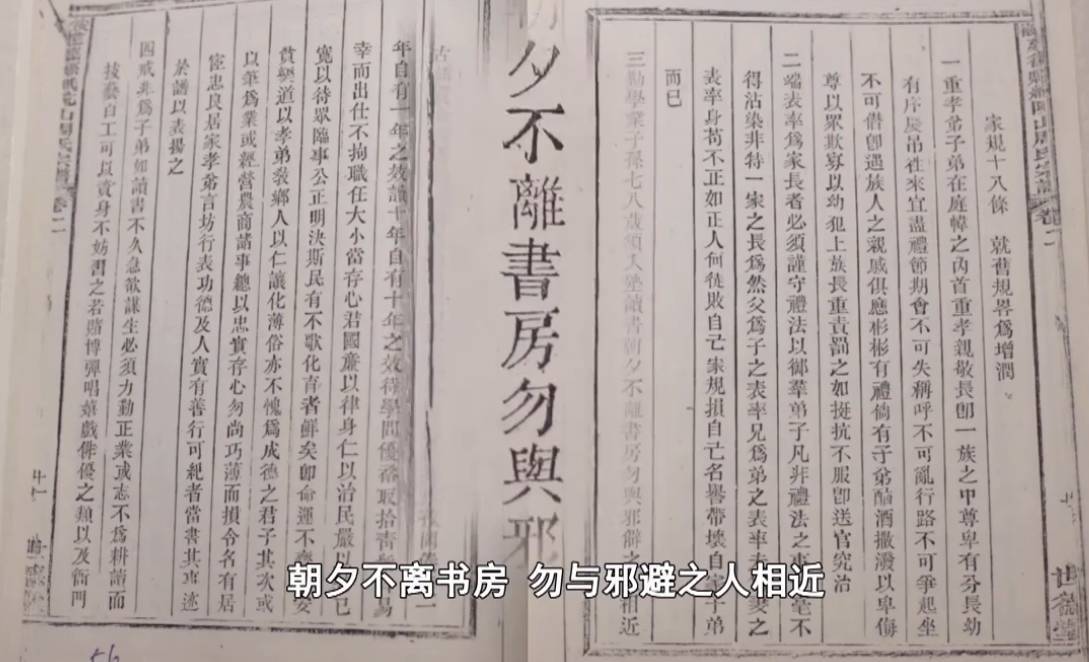 家規十八條 就舊規畧爲增潤
一重孝弟子弟在庭幃之內首重孝親敬長卽一族之中尊卑有分長幼
有序慶吊徃來宜盡禮節期會不可失稱呼不可亂行路不可爭起坐
不可僭卽遇族人之親戚俱應彬彬有禮倘有子弟酗酒撒潑以卑侮
尊以眾欺寡以幼犯上族長重責罰之如挺抗不服卽送官究治
二端表率爲家長者必須謹守禮法以御羣弟子凡非禮法之事毫不
得沾染非特一家之長爲然父爲子之表率兄爲弟之表率夫爲妻之
表率身苟不正如正人何徒敗自己家規損自己名譽帶壞自家子弟
而已
三勤學業子孫七八歲須入塾讀書朝夕不離書房勿與邪僻之人相近
世德堂
夕不離書房勿與邪
年自有一年之效讀十年自有十年之效待學問優裕取拾青
幸而出仕不拘職任大小當存心君國廉以律身仁以治民嚴以
寬以待眾臨事公正明決斯民有不歌化育者鮮矣卽命運不
貧樂道以孝弟教鄉人以仁讓化薄俗亦不愧爲成德之君子其次或
以筆爲業或經營農商諸事總以忠實存心勿尚巧薄而損令名有居
官忠良居家孝弟言坊行表功德及人實有善行可紀者當書其事迹
於譜以表揚之
四戒非爲子弟如讀書不久急欲謀生必須力勤正業或志不爲耕讀而
技藝百工可以資身不妨習之若賭博彈唱嬉戲俳優之類以及衙門
卷二
56
朝夕不离书房 勿与邪避之人相近